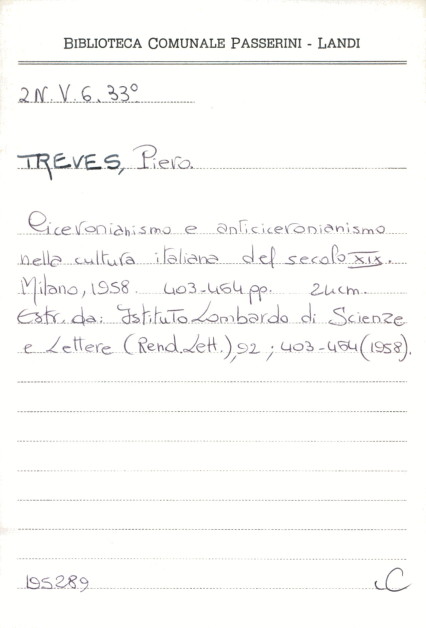 BIBLIOTECA COMUNALE PASSERINI - LANDI
2N.V.6.33°
TREVES, Piero.
Ciceronianismo e anticiceronianismo
nella cultura italiana del secolo XIX.
Milano, 1958. 403-464 pp. 24cm.
Estr. da: Istituto Lombardo di Scienze
e Lettere (Rend. Lett.), 92 ; 403-464 (1958).
195289
C